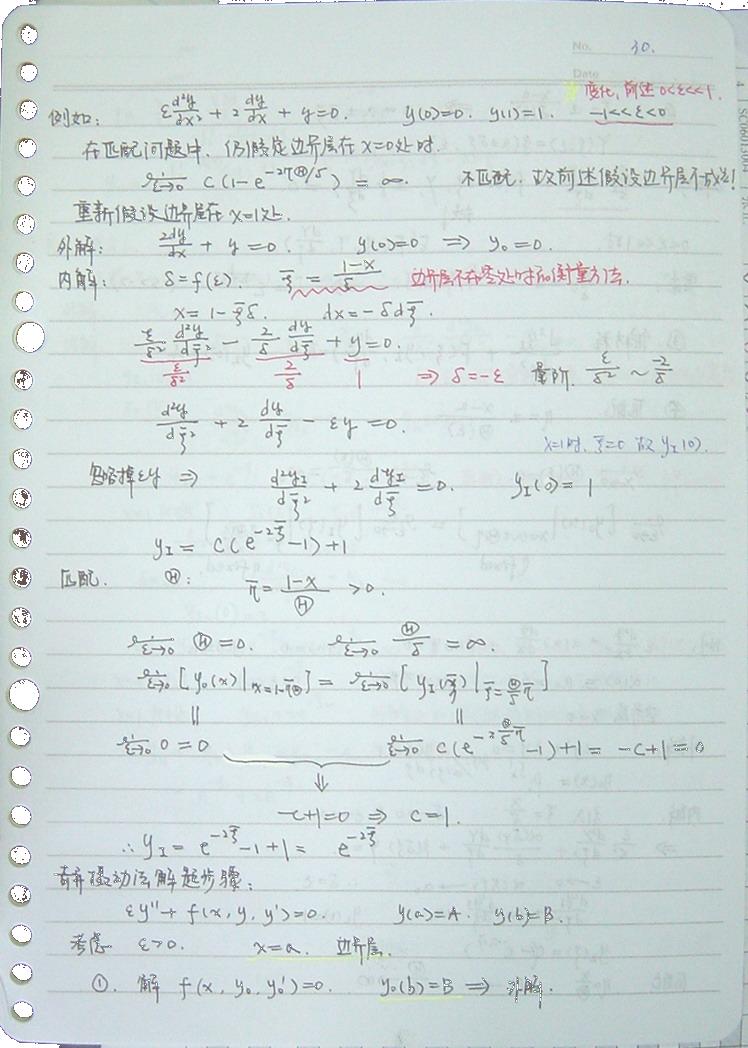 No. 30.
Date
变化, 前述 0<ε<<1.
例如: ε d²y/dx² + 2 dy/dx + y = 0. y(0)=0. y(1)=1. -1<<ε<0
在匹配问题中, 仍假定边界层在 x=0处时.
lim ε→0 C(1-e^{-2πⒽ/δ}) = ∞. 不匹配. 故前述假设边界层不成立!
重新假设边界层在 x=1处.
外解: 2dy/dx + y = 0. y(0)=0 ⇒ y₀=0.
内解: δ=f(ε). ξ̄ = (1-x)/δ 边界层不在零处时的衡量方法.
x = 1-ξ̄δ. dx = -δdξ̄.
ε/δ² d²y/dξ̄² - 2/δ dy/dξ̄ + y = 0.
ε/δ² 2/δ 1 ⇒ δ=-ε 量阶. ε/δ² ~ -2/δ
d²y/dξ̄² + 2 dy/dξ̄ - εy = 0.
x=1时, ξ̄=0 故 y_I(0).
忽略掉εy ⇒ d²y_I/dξ̄² + 2 d²y_I/dξ̄ = 0. y_I(0) = 1
y_I = C(e^{-2ξ̄}-1)+1
匹配. Ⓗ: π̄ = (1-x)/Ⓗ > 0.
lim ε→0 Ⓗ = 0. lim ε→0 Ⓗ/δ = ∞.
lim ε→0 [y₀(x)|x=1-π̄Ⓗ] = lim ε→0 [y_I(ξ̄)|ξ̄=Ⓗ/δ π̄]
|| ||
lim ε→0 0 = 0 lim ε→0 C(e^{-2Ⓗ/δ π̄}-1)+1 = -C+1 = 0
⇓
-C+1=0 ⇒ C=1.
∴ y_I = e^{-2ξ̄}-1+1 = e^{-2ξ̄}
奇异摄动法解题步骤:
εy''+f(x,y,y')=0. y(a)=A. y(b)=B.
考虑 ε>0. x=a. 边界层.
①. 解 f(x,y₀,y₀')=0. y₀(b)=B ⇒ 外解.